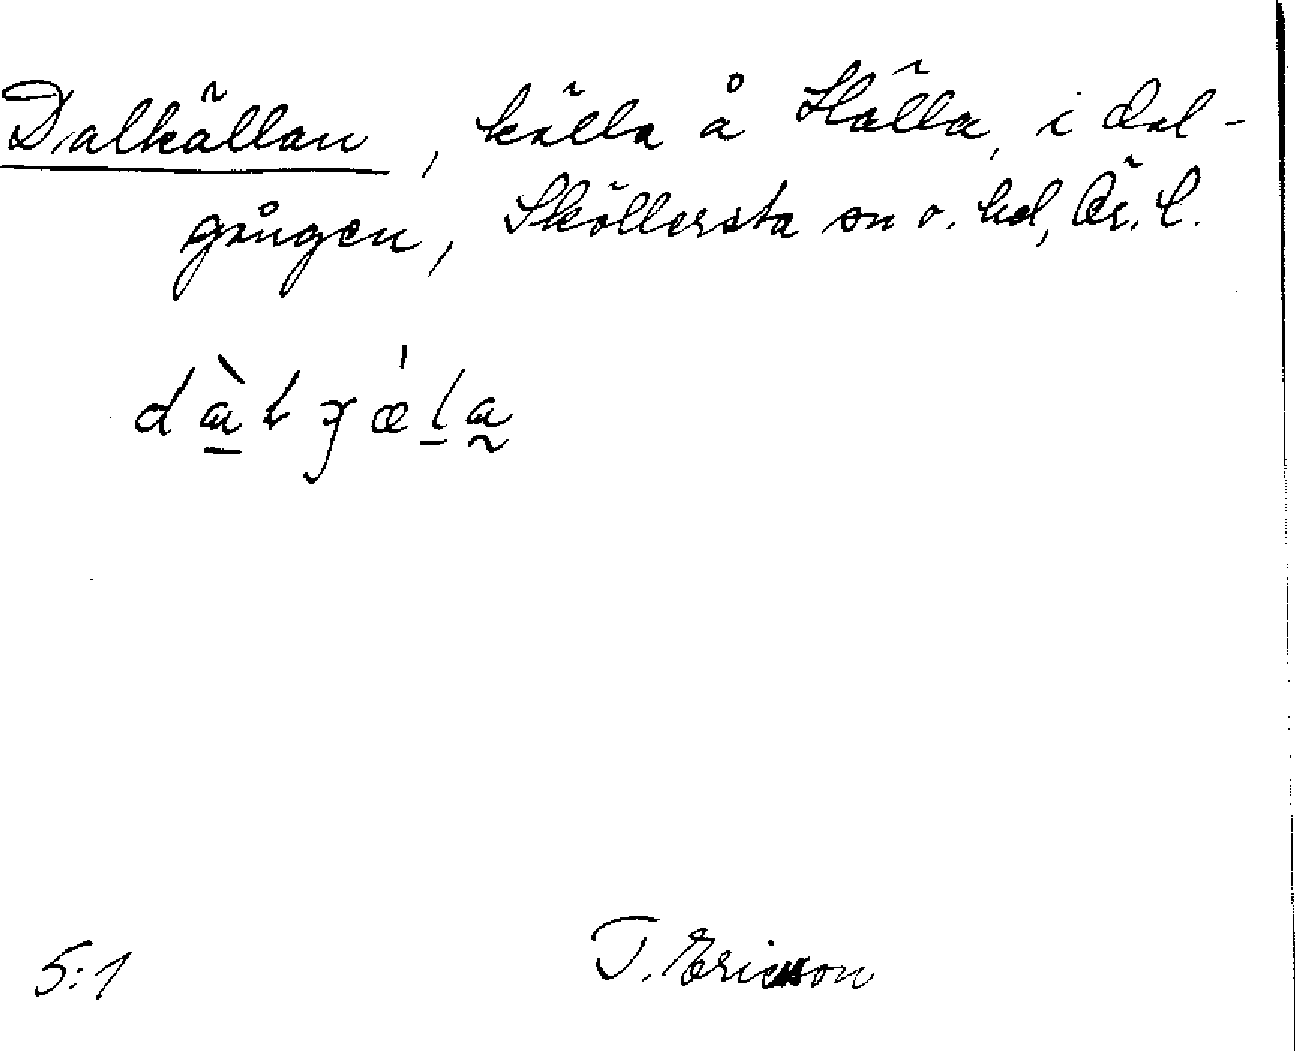 Dalkällan, källa å Hälla, i dal-
gången, Sköllersta sn o. hd, Ör. l.
dàlɣæ̍la
5:1 T. Ericson